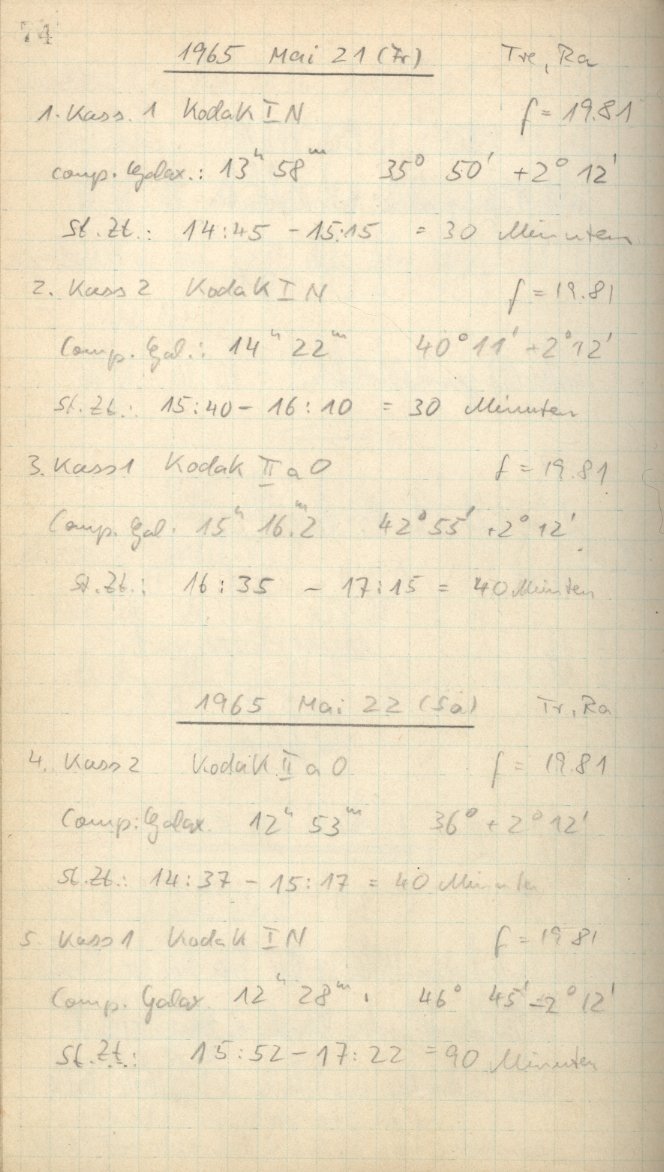 74
1965 Mai 21 (Fr) Tre, Ra
1. Kass. 1 Kodak I N f = 19.81
comp. Galax.: 13h 58m 35° 50' +2° 12'
St. Zt.: 14:45 - 15:15 = 30 Minuten
2. Kass 2 Kodak I N f = 19.81
Comp. Gal.: 14h 22m 40° 11' +2° 12'
St. Zt.: 15:40 - 16:10 = 30 Minuten
3. Kass 1 Kodak II a O f = 19.81
Comp. Gal. 15h 16m.2 42° 55' +2° 12'
St. Zt.: 16:35 - 17:15 = 40 Minuten
1965 Mai 22 (Sa) Tr, Ra
4. Kass 2 Kodak II a O f = 19.81
Comp: Galax. 12h 53m 36° +2° 12'
St. Zt.: 14:37 - 15:17 = 40 Minuten
5. Kass 1 Kodak I N f = 19 81
Comp. Galax 12h 28m. 46° 45' 2° 12'
St. Zt.: 15:52 - 17:22 = 90 Minuten